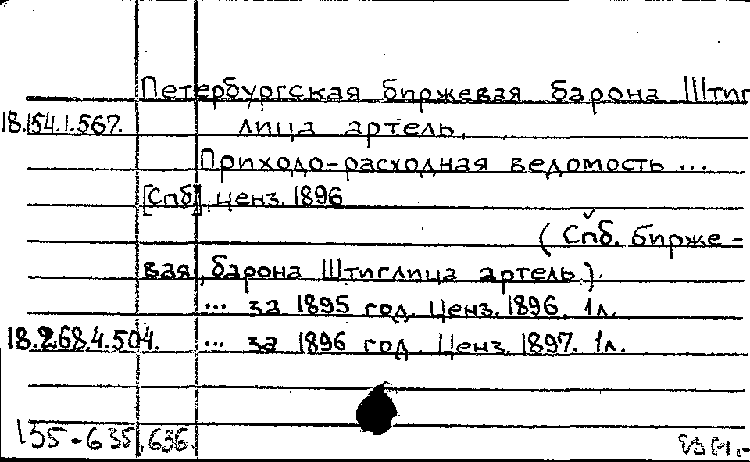 Петербургская биржевая барона Штиг
18.154.1.567. лица артель.
Приходо-расходная ведомость ...
[Спб] ценз. 1896
(Спб. бирже-
вая, барона Штиглица артель).
... за 1895 год. Ценз. 1896. 1л.
18.268.4.504. ... за 1896 год. Ценз. 1897. 1л.
135-635,636.